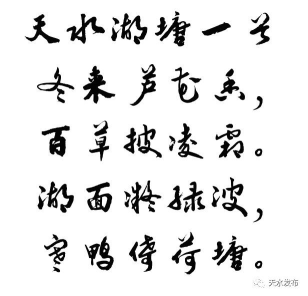 天水湖塘一首
冬来芦花香,
百草披凌霜。
湖面凝绿波,
寒鸭倚荷塘。
天水发布